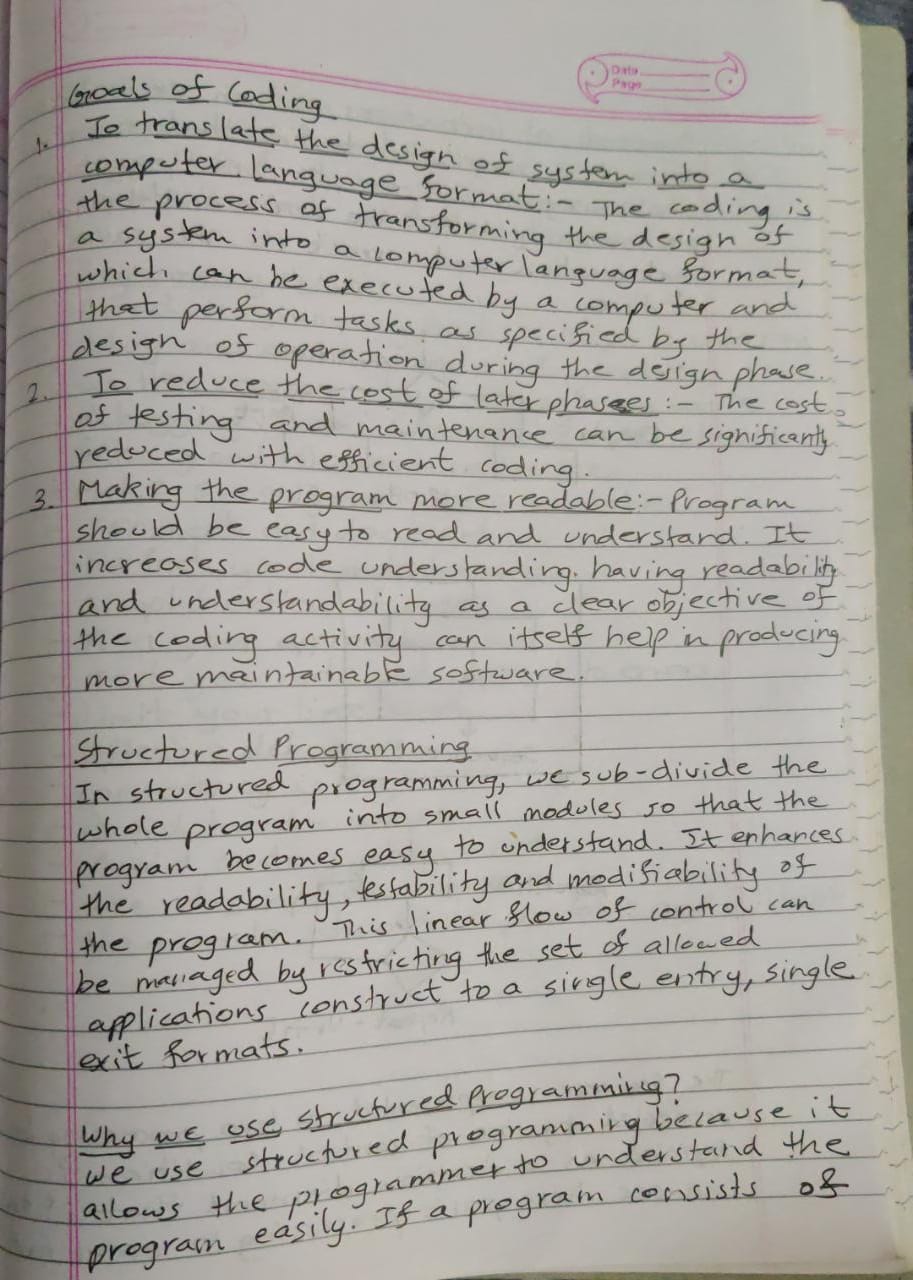 Date
Page
Goals of Coding
1. To translate the design of system into a
computer language format:- The coding is
the process of transforming the design of
a system into a computer language format,
which can be executed by a computer and
that perform tasks as specified by the
design of operation during the design phase.
2. To reduce the cost of later phasees :- The cost
of testing and maintenance can be significantly
reduced with efficient coding.
3. Making the program more readable:- Program
should be easy to read and understand. It
increases code understanding. having readability
and understandability as a clear objective of
the coding activity can itself help in producing
more maintainable software.
Structured Programming
In structured programming, we sub-divide the
whole program into small modules so that the
program becomes easy to understand. It enhances
the readability, testability and modifiability of
the program. This linear flow of control can
be managed by restricting the set of allowed
applications construct to a single entry, single
exit formats.
Why we use structured Programming?
We use structured programming because it
allows the programmer to understand the
program easily. If a program consists of